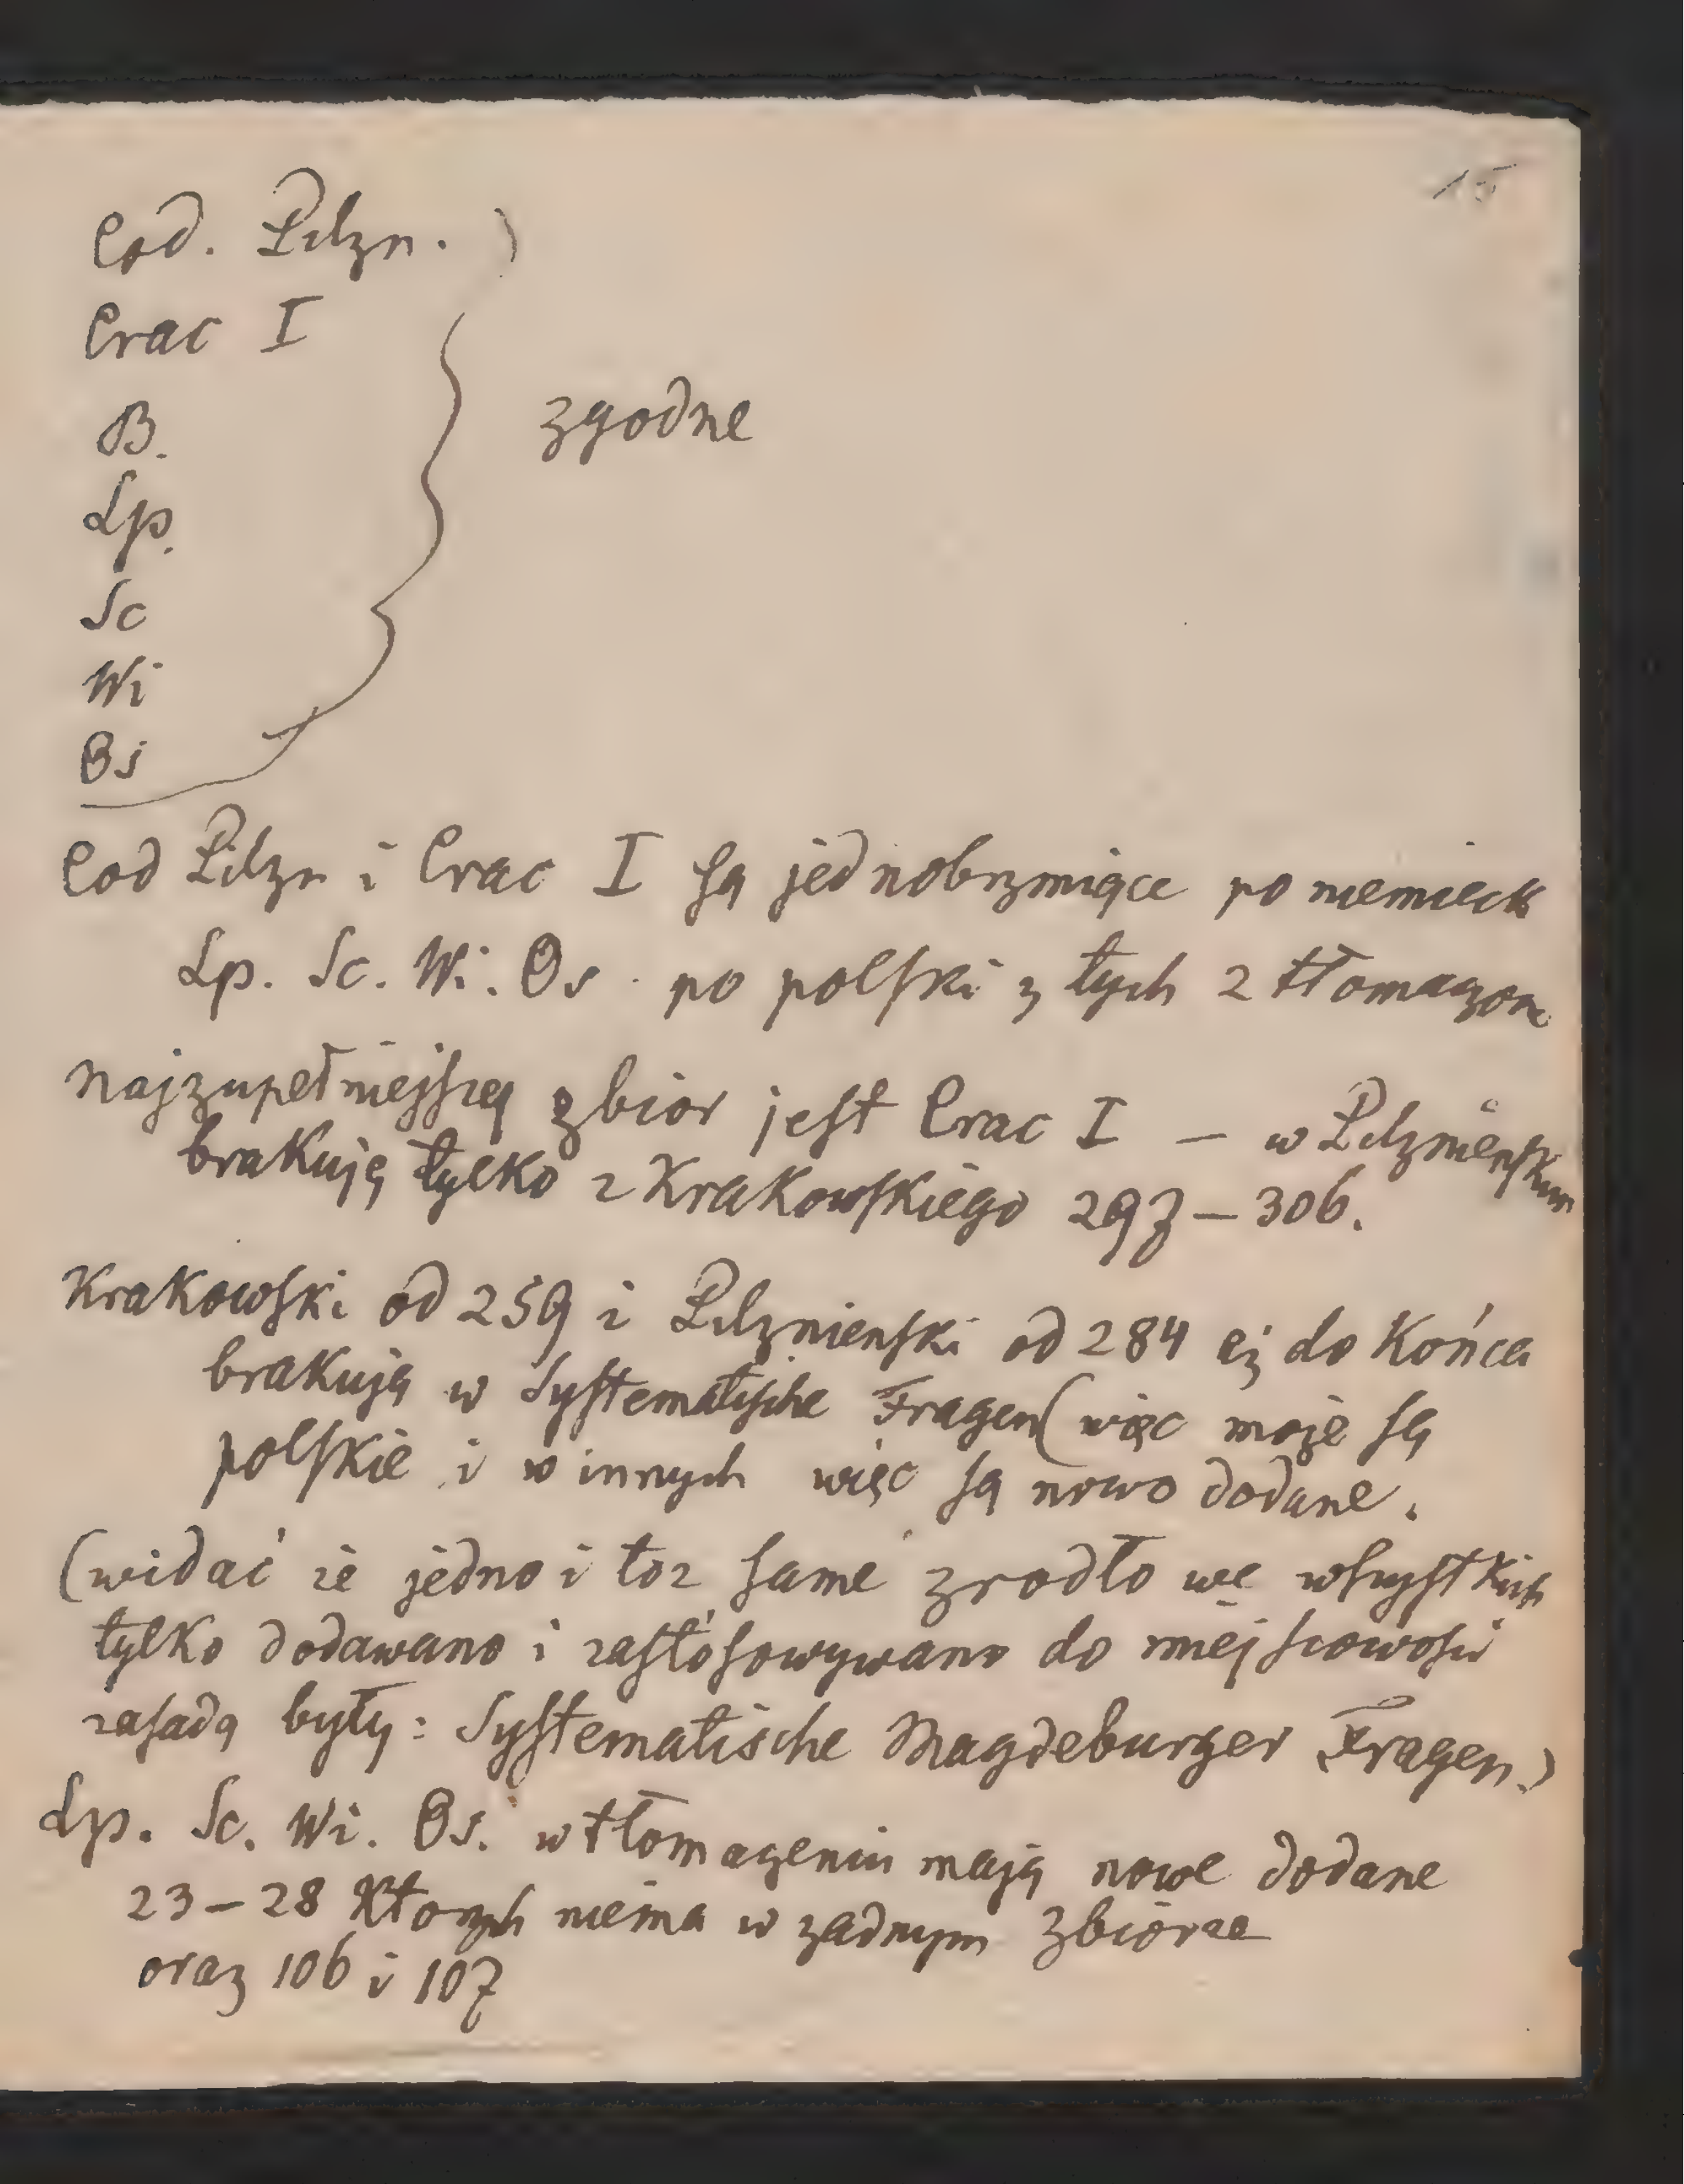 15
Cod. Pilzn.
Crac I
B.
Lp.
Sc
Wi
Os
zgodne
Cod Pilzn i Crac I są jednobrzmiące po niemieck
Lp. Sc. Wi. Os. po polski z tych 2 tłomaczone
Najzupełniejszej zbior jest Crac I – w Pilznieńskim
brakują tylko z Krakowskiego 297–306.
Krakowski od 259 i Pilznienski od 284 aż do Końca
brakują w Systematische Fragen (więc może są
polskie i w innych więc są nowo dodane.
(widać ze jedno i toz same zrodło we wszystkich
tylko dodawano i zastósowywano do miejscowości
zasadą były: Systematische Magdeburger Fragen.)
Lp. Sc. Wi. Os. w tłomaczeniu mają nowe dodane
23–28 Ktorych niema w zadnym zbiorze
oraz 106 i 107